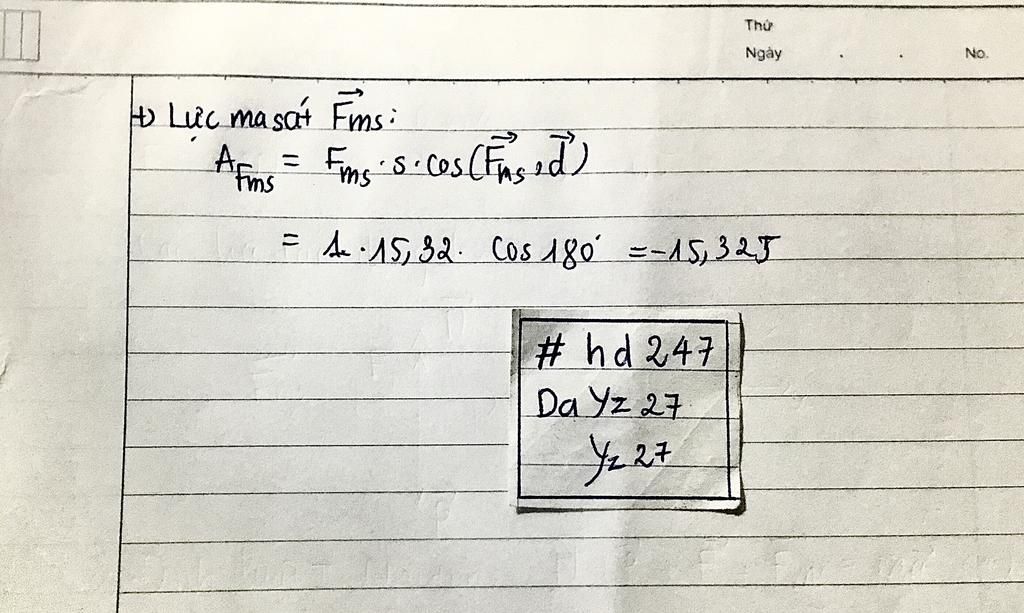 Thứ
Ngày . . No.
+) Lực ma sát F⃗ms:
A_Fms = Fms . s . cos(F⃗ms, d⃗)
= 1 . 15,32 . cos 180° = -15,32J
# hd 247
Da Yz 27
Yz 27